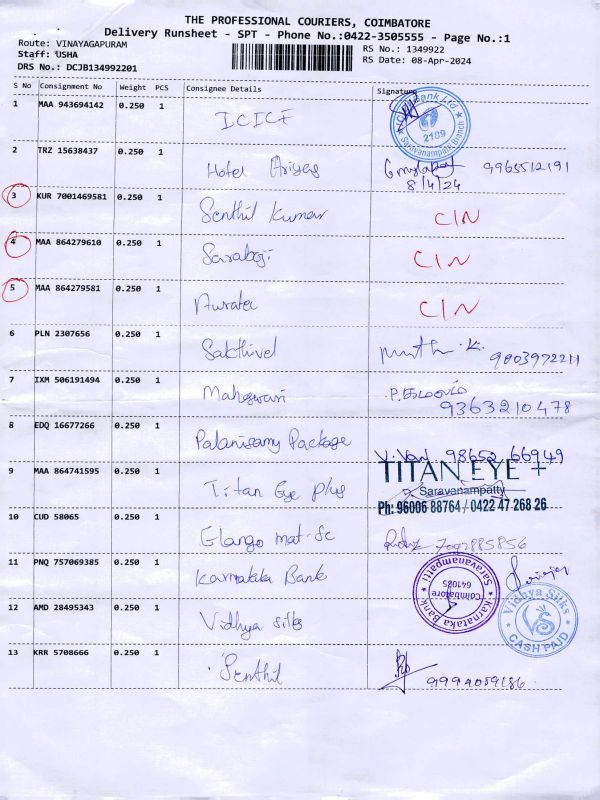 THE PROFESSIONAL COURIERS, COIMBATORE
Delivery Runsheet - SPT - Phone No.:0422-3505555 - Page No.:1
Route: VINAYAGAPURAM
Staff: USHA
DRS No.: DCJB134992201
RS No.: 1349922
RS Date: 08-Apr-2024
S No Consignment No Weight PCS Consignee Details Signature
1 MAA 943694142 0.250 1 ICICI
Bank Ltd 2109 Saravanampatti Branch
2 TRZ 15638437 0.250 1 Hotel 9965512191
8/4/24
3 KUR 7001469581 0.250 1 Senthil Kumar CIN
4 MAA 864279610 0.250 1 Saraboji CIN
5 MAA 864279581 0.250 1 CIN
6 PLN 2307656 0.250 1 Sakthivel 9003972211
7 IXM 506191494 0.250 1 Maheswari
9363210478
8 EDQ 16677266 0.250 1 Palanisamy Package 98652 66949
9 MAA 864741595 0.250 1 Titan Eye Plus
TITAN EYE +
Saravanampatty
Ph: 96006 88764 / 0422 47 268 26
10 CUD 58065 0.250 1 Elango mat-Sc
11 PNQ 757069385 0.250 1 Karnataka Bank
Karnataka Bank Saravanampatti Coimbatore 641035
12 AMD 28495343 0.250 1 Vidhya silks
Vidhya Silks VS CASH PAID
13 KRR 5708666 0.250 1 Senthil
9994059186